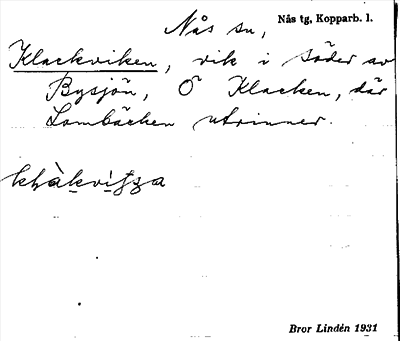 Nås sn, Nås tg, Kopparb. l.
Klackviken, vik i söder av
Bysjön, Ö Klacken, där
Lombäcken utrinner.
Bror Lindén 1931